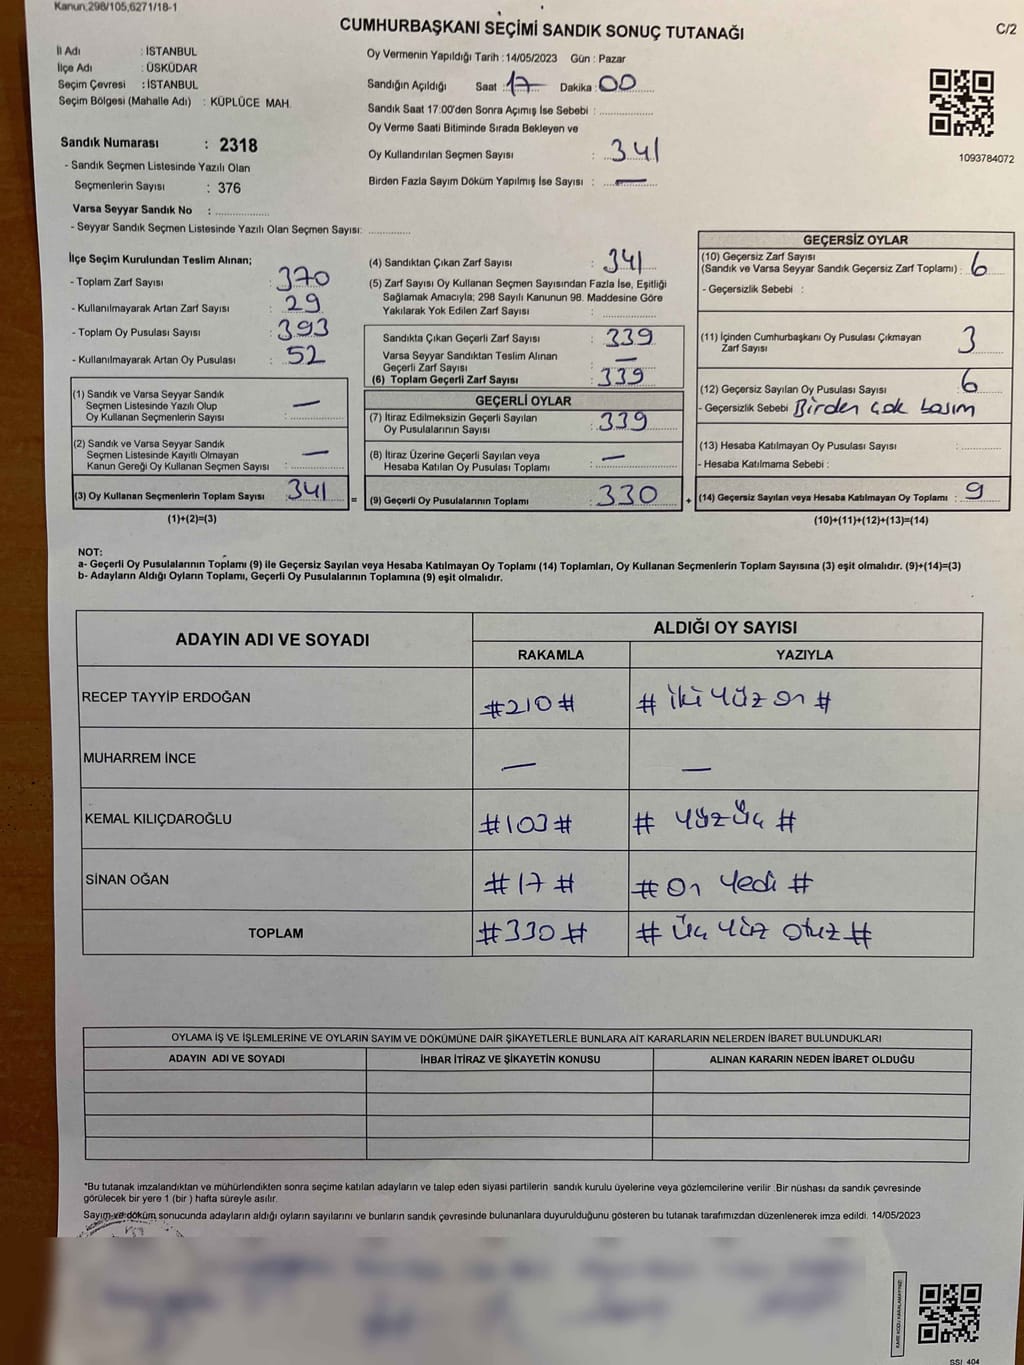 Kanun;298/105,6271/18-1
CUMHURBAŞKANI SEÇİMİ SANDIK SONUÇ TUTANAĞI
C/2
İl Adı : İSTANBUL
İlçe Adı : ÜSKÜDAR
Seçim Çevresi : İSTANBUL
Seçim Bölgesi (Mahalle Adı) : KÜPLÜCE MAH.
Oy Vermenin Yapıldığı Tarih : 14/05/2023 Gün : Pazar
Sandığın Açıldığı Saat : 17 Dakika : 00
Sandık Saat 17:00'den Sonra Açımış İse Sebebi :
Oy Verme Saati Bitiminde Sırada Bekleyen ve
Oy Kullandırılan Seçmen Sayısı : 341
Birden Fazla Sayım Döküm Yapılmış İse Sayısı : —
1093784072
Sandık Numarası : 2318
- Sandık Seçmen Listesinde Yazılı Olan
Seçmenlerin Sayısı : 376
Varsa Seyyar Sandık No :
- Seyyar Sandık Seçmen Listesinde Yazılı Olan Seçmen Sayısı:
İlçe Seçim Kurulundan Teslim Alınan;
- Toplam Zarf Sayısı : 370
- Kullanılmayarak Artan Zarf Sayısı : 29
- Toplam Oy Pusulası Sayısı : 393
- Kullanılmayarak Artan Oy Pusulası : 52
(1) Sandık ve Varsa Seyyar Sandık
Seçmen Listesinde Yazılı Olup
Oy Kullanan Seçmenlerin Sayısı : —
(2) Sandık ve Varsa Seyyar Sandık
Seçmen Listesinde Kayıtlı Olmayan
Kanun Gereği Oy Kullanan Seçmen Sayısı : —
(3) Oy Kullanan Seçmenlerin Toplam Sayısı : 341
(1)+(2)=(3)
(4) Sandıktan Çıkan Zarf Sayısı : 341
(5) Zarf Sayısı Oy Kullanan Seçmen Sayısından Fazla İse, Eşitliği
Sağlamak Amacıyla; 298 Sayılı Kanunun 98. Maddesine Göre
Yakılarak Yok Edilen Zarf Sayısı :
Sandıkta Çıkan Geçerli Zarf Sayısı : 339
Varsa Seyyar Sandıktan Teslim Alınan
Geçerli Zarf Sayısı : —
(6) Toplam Geçerli Zarf Sayısı : 339
GEÇERLİ OYLAR
(7) İtiraz Edilmeksizin Geçerli Sayılan
Oy Pusulalarının Sayısı : 339
(8) İtiraz Üzerine Geçerli Sayılan veya
Hesaba Katılan Oy Pusulası Toplamı : —
= (9) Geçerli Oy Pusulalarının Toplamı : 330
GEÇERSİZ OYLAR
(10) Geçersiz Zarf Sayısı
(Sandık ve Varsa Seyyar Sandık Geçersiz Zarf Toplamı) : 6
- Geçersizlik Sebebi :
(11) İçinden Cumhurbaşkanı Oy Pusulası Çıkmayan
Zarf Sayısı : 3
(12) Geçersiz Sayılan Oy Pusulası Sayısı : 6
- Geçersizlik Sebebi Birden çok basım
(13) Hesaba Katılmayan Oy Pusulası Sayısı :
- Hesaba Katılmama Sebebi :
+ (14) Geçersiz Sayılan veya Hesaba Katılmayan Oy Toplamı : 9
(10)+(11)+(12)+(13)=(14)
NOT:
a- Geçerli Oy Pusulalarının Toplamı (9) ile Geçersiz Sayılan veya Hesaba Katılmayan Oy Toplamı (14) Toplamları, Oy Kullanan Seçmenlerin Toplam Sayısına (3) eşit olmalıdır. (9)+(14)=(3)
b- Adayların Aldığı Oyların Toplamı, Geçerli Oy Pusulalarının Toplamına (9) eşit olmalıdır.
ADAYIN ADI VE SOYADI
ALDIĞI OY SAYISI
RAKAMLA YAZIYLA
RECEP TAYYİP ERDOĞAN #210# # iki yüz on #
MUHARREM İNCE — —
KEMAL KILIÇDAROĞLU #103# # yüz üç #
SİNAN OĞAN #17# # on yedi #
TOPLAM #330# # üç yüz otuz #
OYLAMA İŞ VE İŞLEMLERİNE VE OYLARIN SAYIM VE DÖKÜMÜNE DAİR ŞİKAYETLERLE BUNLARA AİT KARARLARIN NELERDEN İBARET BULUNDUKLARI
ADAYIN ADI VE SOYADI İHBAR İTİRAZ VE ŞİKAYETİN KONUSU ALINAN KARARIN NEDEN İBARET OLDUĞU
*Bu tutanak imzalandıktan ve mühürlendikten sonra seçime katılan adayların ve talep eden siyasi partilerin sandık kurulu üyelerine veya gözlemcilerine verilir .Bir nüshası da sandık çevresinde
görülecek bir yere 1 (bir ) hafta süreyle asılır.
Sayım ve döküm sonucunda adayların aldığı oyların sayılarını ve bunların sandık çevresinde bulunanlara duyurulduğunu gösteren bu tutanak tarafımızdan düzenlenerek imza edildi. 14/05/2023
SSI 404